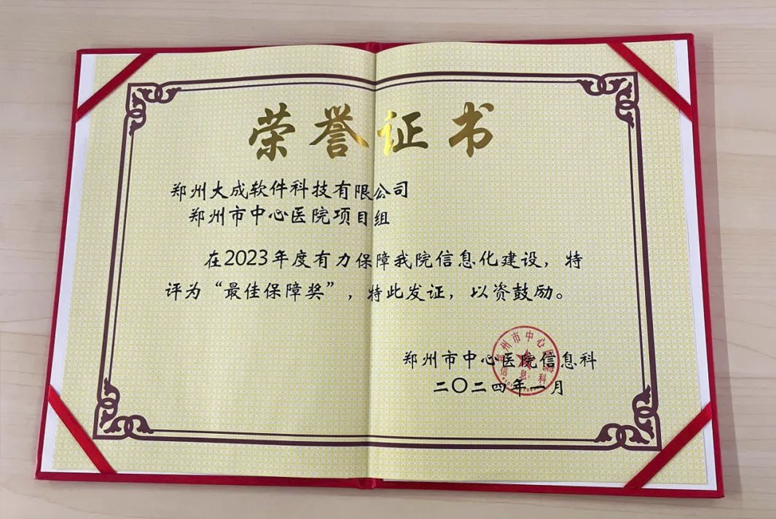 荣誉证书
郑州大成软件科技有限公司
郑州市中心医院项目组
在2023年度有力保障我院信息化建设，特
评为“最佳保障奖”，特此发证，以资鼓励。
郑州市中心医院信息科
二〇二四年一月